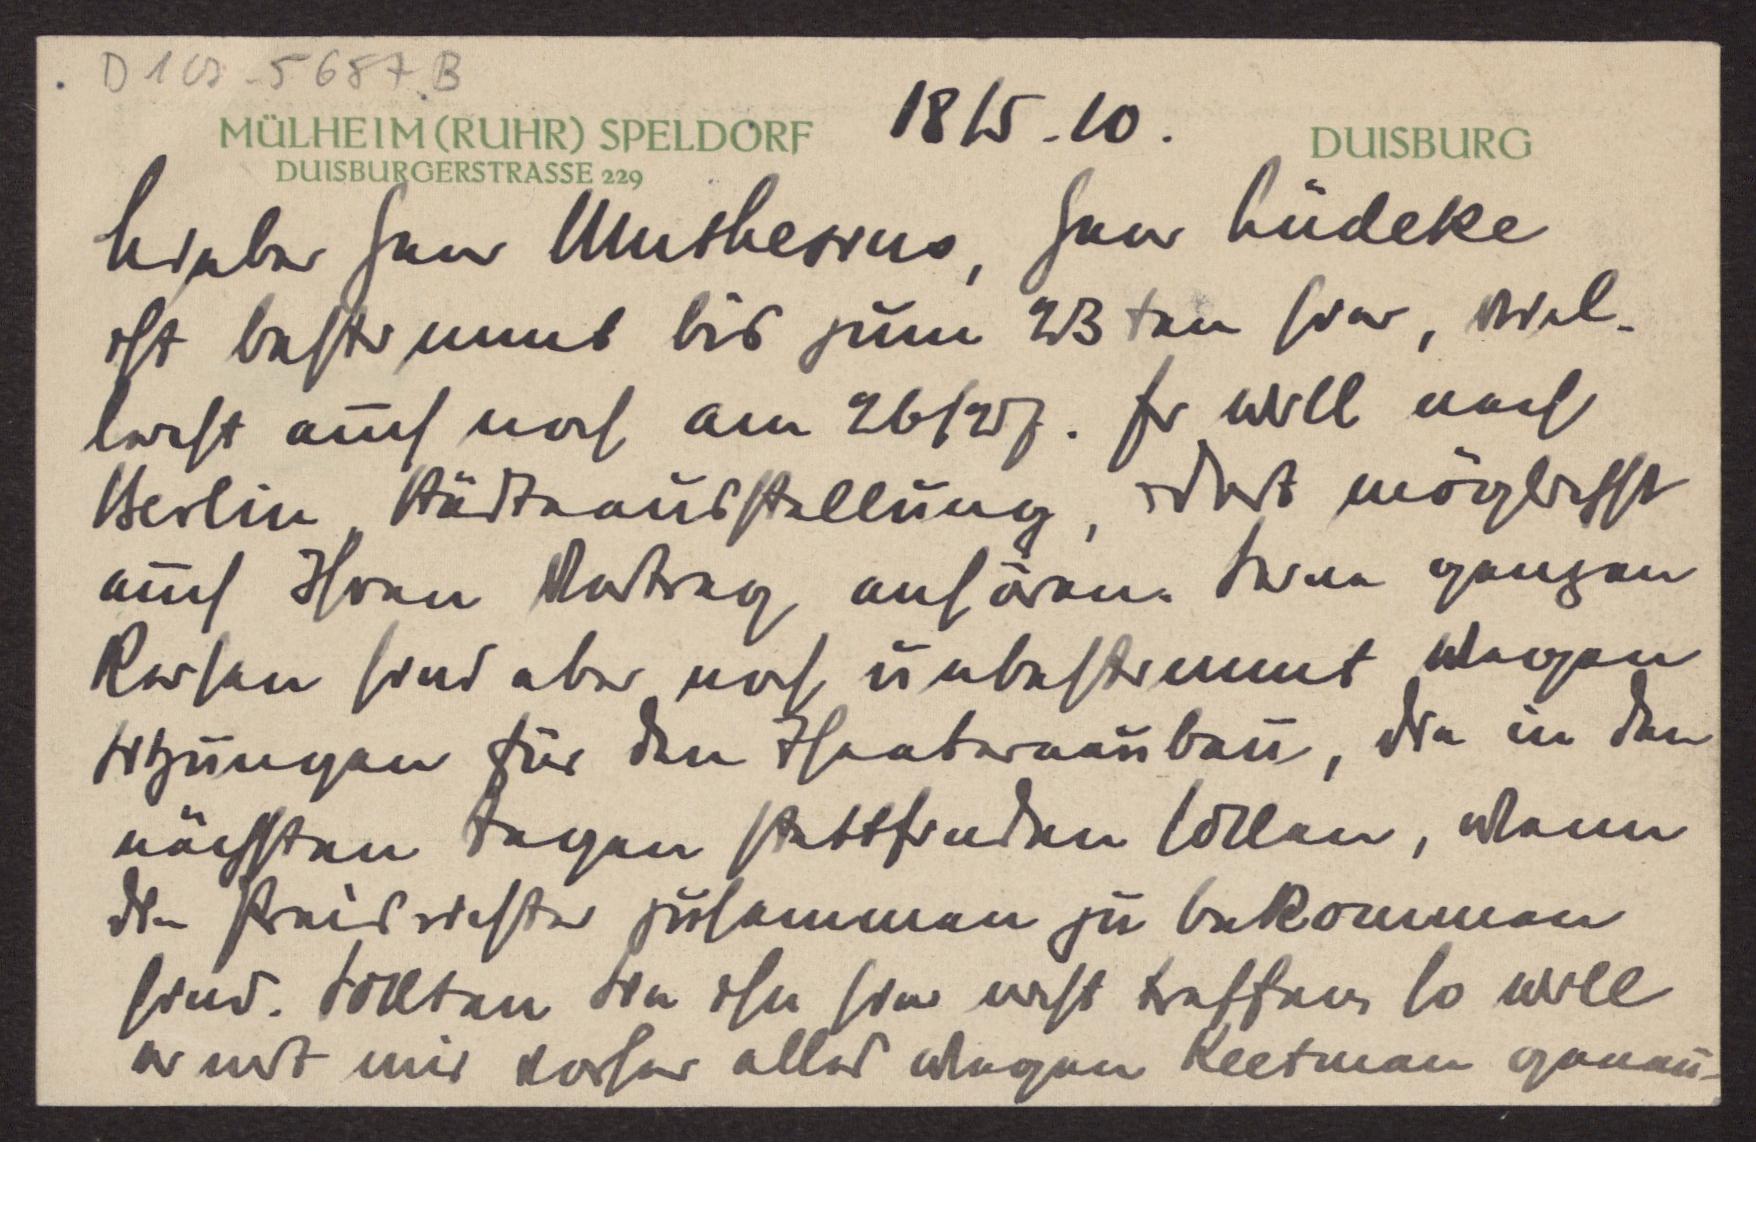 D 102-5687.B
MÜLHEIM (RUHR) SPELDORF 18/5.10. DUISBURG
DUISBURGERSTRASSE 229
Lieber Herr Muthesius, Herr Lüdeke
ist bestimmt bis zum 23ten hier, viel-
leicht auch noch am 26/27. Er will nach
Berlin, Städteausstellung, dort möglichst
auch Ihren Vortrag anhören. Seine ganzen
Reisen sind aber noch unbestimmt wegen
Sitzungen für den Theaterneubau, die in den
nächsten Tagen stattfinden sollen, wenn
die Preisrichter zusammen zu bekommen
sind. Sollten Sie ihn hier nicht treffen so will
er mit mir vorher alles wegen Keetman genau-